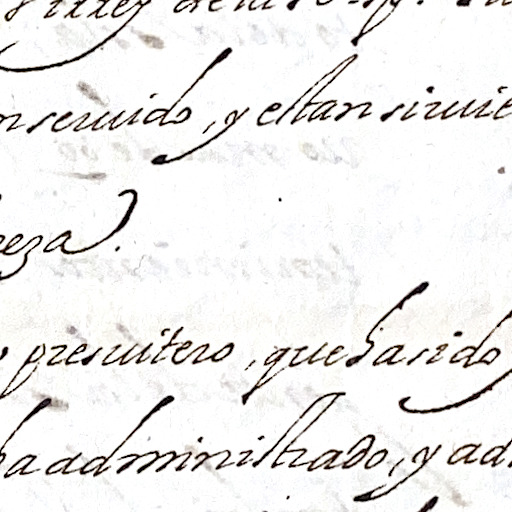 nseruido, y estan siruie
eza.
presuitero, que ha sido
ha administrado, y ad